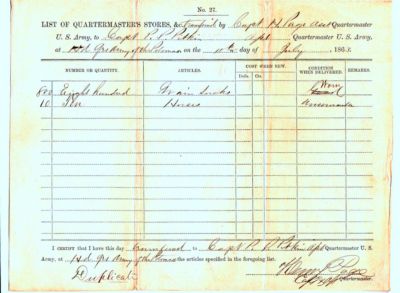 No. 27.
LIST OF QUARTERMASTER'S STORES, &c., transferred by Capt H. Page asst Quartermaster
U. S. Army, to Capt P. P. Pitkin aqt Quartermaster U. S. Army,
at Hd Qrs Army of the Potomac on the 10th day of July, 1863.
NUMBER OR QUANTITY. ARTICLES. COST WHEN NEW. CONDITION WHEN DELIVERED. REMARKS.
Dolls. Cts.
800 Eight hundred Grain Sacks Worn
10 Ten Horses
I CERTIFY that I have this day transferred to Capt P. P. Pitkin Quartermaster U. S.
Army, at Hd Qrs Army of the Potomac the articles specified in the foregoing list.
Duplicate